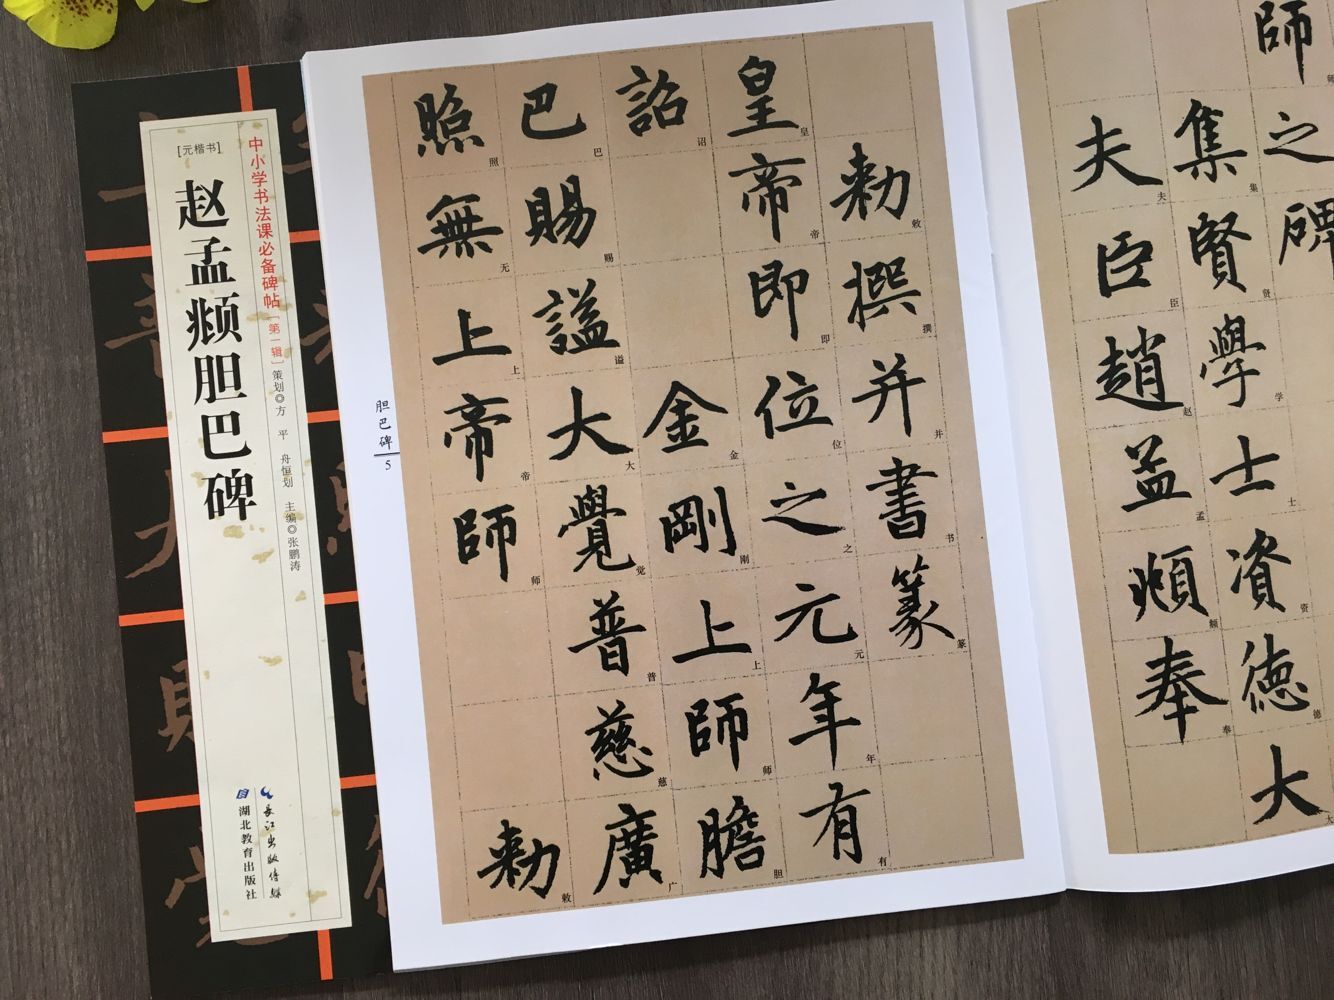 [元楷书]
赵孟頫胆巴碑
中小学书法课必备碑帖[第一辑]
策划◎方 平 舟恒划 主编◎张鹏涛
湖北教育出版社
长江出版传媒
胆巴碑
5
師之碑
集賢學士資德大
夫臣趙孟頫奉
师
集贤学士资德大
夫臣赵孟頫奉
勅撰并書篆
皇帝即位之元年有
詔金剛上師膽
巴賜謚大覺普慈廣
照無上帝師勅
敕撰并书篆
皇帝即位之元年有
诏金刚上师胆
巴赐谥大觉普慈广
照无上帝师敕